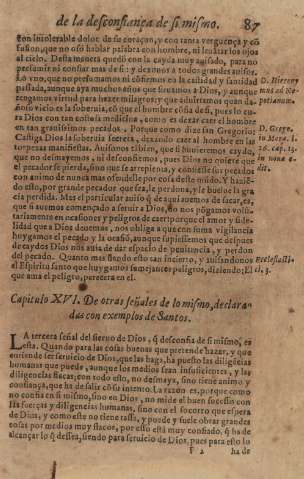 de la desconfiança de si mismo. 87
con intolerable dolor de su coraçon, y con tanta verguença y cõ
fusion, que no osó hablar palabra con hombre, ni leuãtar los ojos
al cielo. Desta manera quedò con la cayda muy auisado, para no
presumir ni confiar mas de si: y dexonos a todos grandes auisos.
Lo vno, que no presumamos ni cõfiemos en la castidad y santidad
passada, aunque aya muchos años que siruamos a Dios, y aunque
tengamos virtud para hazer milagros: y que aduirtamos quan da-
ñoso vicio es la soberuia, cõ que el hombre cõfia de si, pues lo cu-
ra Dios con tan costosa medicina, como es dexar caer el hombre
en tan grauissimos pecados. Porque como dize san Gregorio:
Castiga Dios la soberuia secreta, dexando caer al hombre en las
torpezas manifiestas. Auisanos tãbien, que si huuieremos caydo,
que no desmayemos, ni desconfiemos, pues Dios no quiere que
el pecador se pierda, sino que se arrepienta, y confiesse sus pecados
con animo de nunca mas ofenderle por cosa deste mũdo. Y hazié-
do esto, por grande pecador que sea, le perdona, y le buelue la gra
cia perdida. Mas el particular auiso q̃ de aqui auemos de sacar, es,
que si auemos començado a seruir a Dios, no nos põgamos volũ-
tariamente en ocasiones y peligros de caer: porque el amor y fide-
lidad que a Dios deuemos, nos obliga a que con suma vigilancia
huygamos el pecado y la ocasiõ, aunque supiessemos que despues
de caydos Dios nos auia de dar espacio de penitencia, y perdon
del pecado. Quanto mas siendo esto tan incierto, y auisandonos
el Espiritu santo que huygamos semejantes peligros, diziendo: El
que ama el peligro, perecera en el.
D. Hierony
mus ad Ne-
potianum.
D. Grego.
in Mora. l.
26. cap. 13.
in noua e-
dit.
Ecclesiasti-
ci. 3.
Capitulo XVI. De otras señales de lo mismo, declara-
das con exemplos de Santos.
LA tercera señal del sieruo de Dios, q̃ desconfia de si mismo, es
esta. Quando para las cosas buenas que pretende hazer, y que
entiende ser seruicio de Dios, que las haga, ha puesto las diligẽcias
humanas que puede, aunque los medios sean insuficientes, y las
diligencias flacas; con todo esto, no desmaya, sino tiene animo y
confiança, que ha de salir cõ su intento. La razon es, porque como
no confia en si mismo, sino en Dios, no mide el buen sucesso con
sus fuerças y diligencias humanas, sino con el socorro que espera
de Dios, y como este no tiene tassa, y puede y suele obrar grandes
cosas por medios muy flacos, por esto està muy confiado, q̃ ha de
alcançar lo q̃ dessea, siendo para seruicio de Dios, pues para esto lo
F 2 ha de